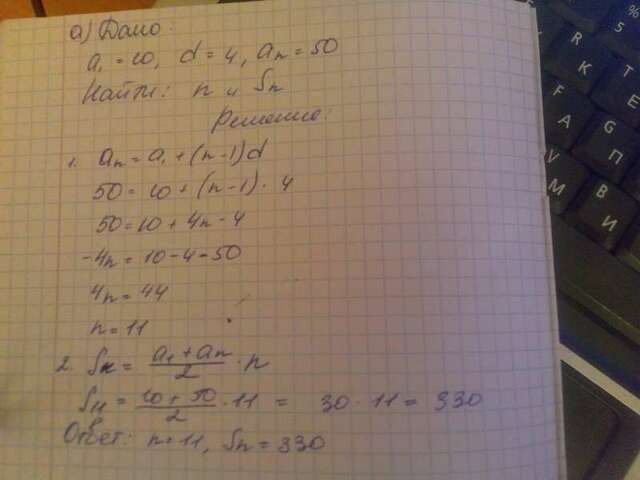 а) Дано:
a₁ = 10, d = 4, aₙ = 50
Найти: n и Sₙ
Решение:
1. aₙ = a₁ + (n-1)d
50 = 10 + (n-1) · 4
50 = 10 + 4n - 4
-4n = 10 - 4 - 50
4n = 44
n = 11
2. Sₙ = (a₁ + aₙ)/2 · n
S₁₁ = (10 + 50)/2 · 11 = 30 · 11 = 330
Ответ: n = 11, Sₙ = 330
%
5
R
K
T
E
F
A
G
П
V
M
B
И